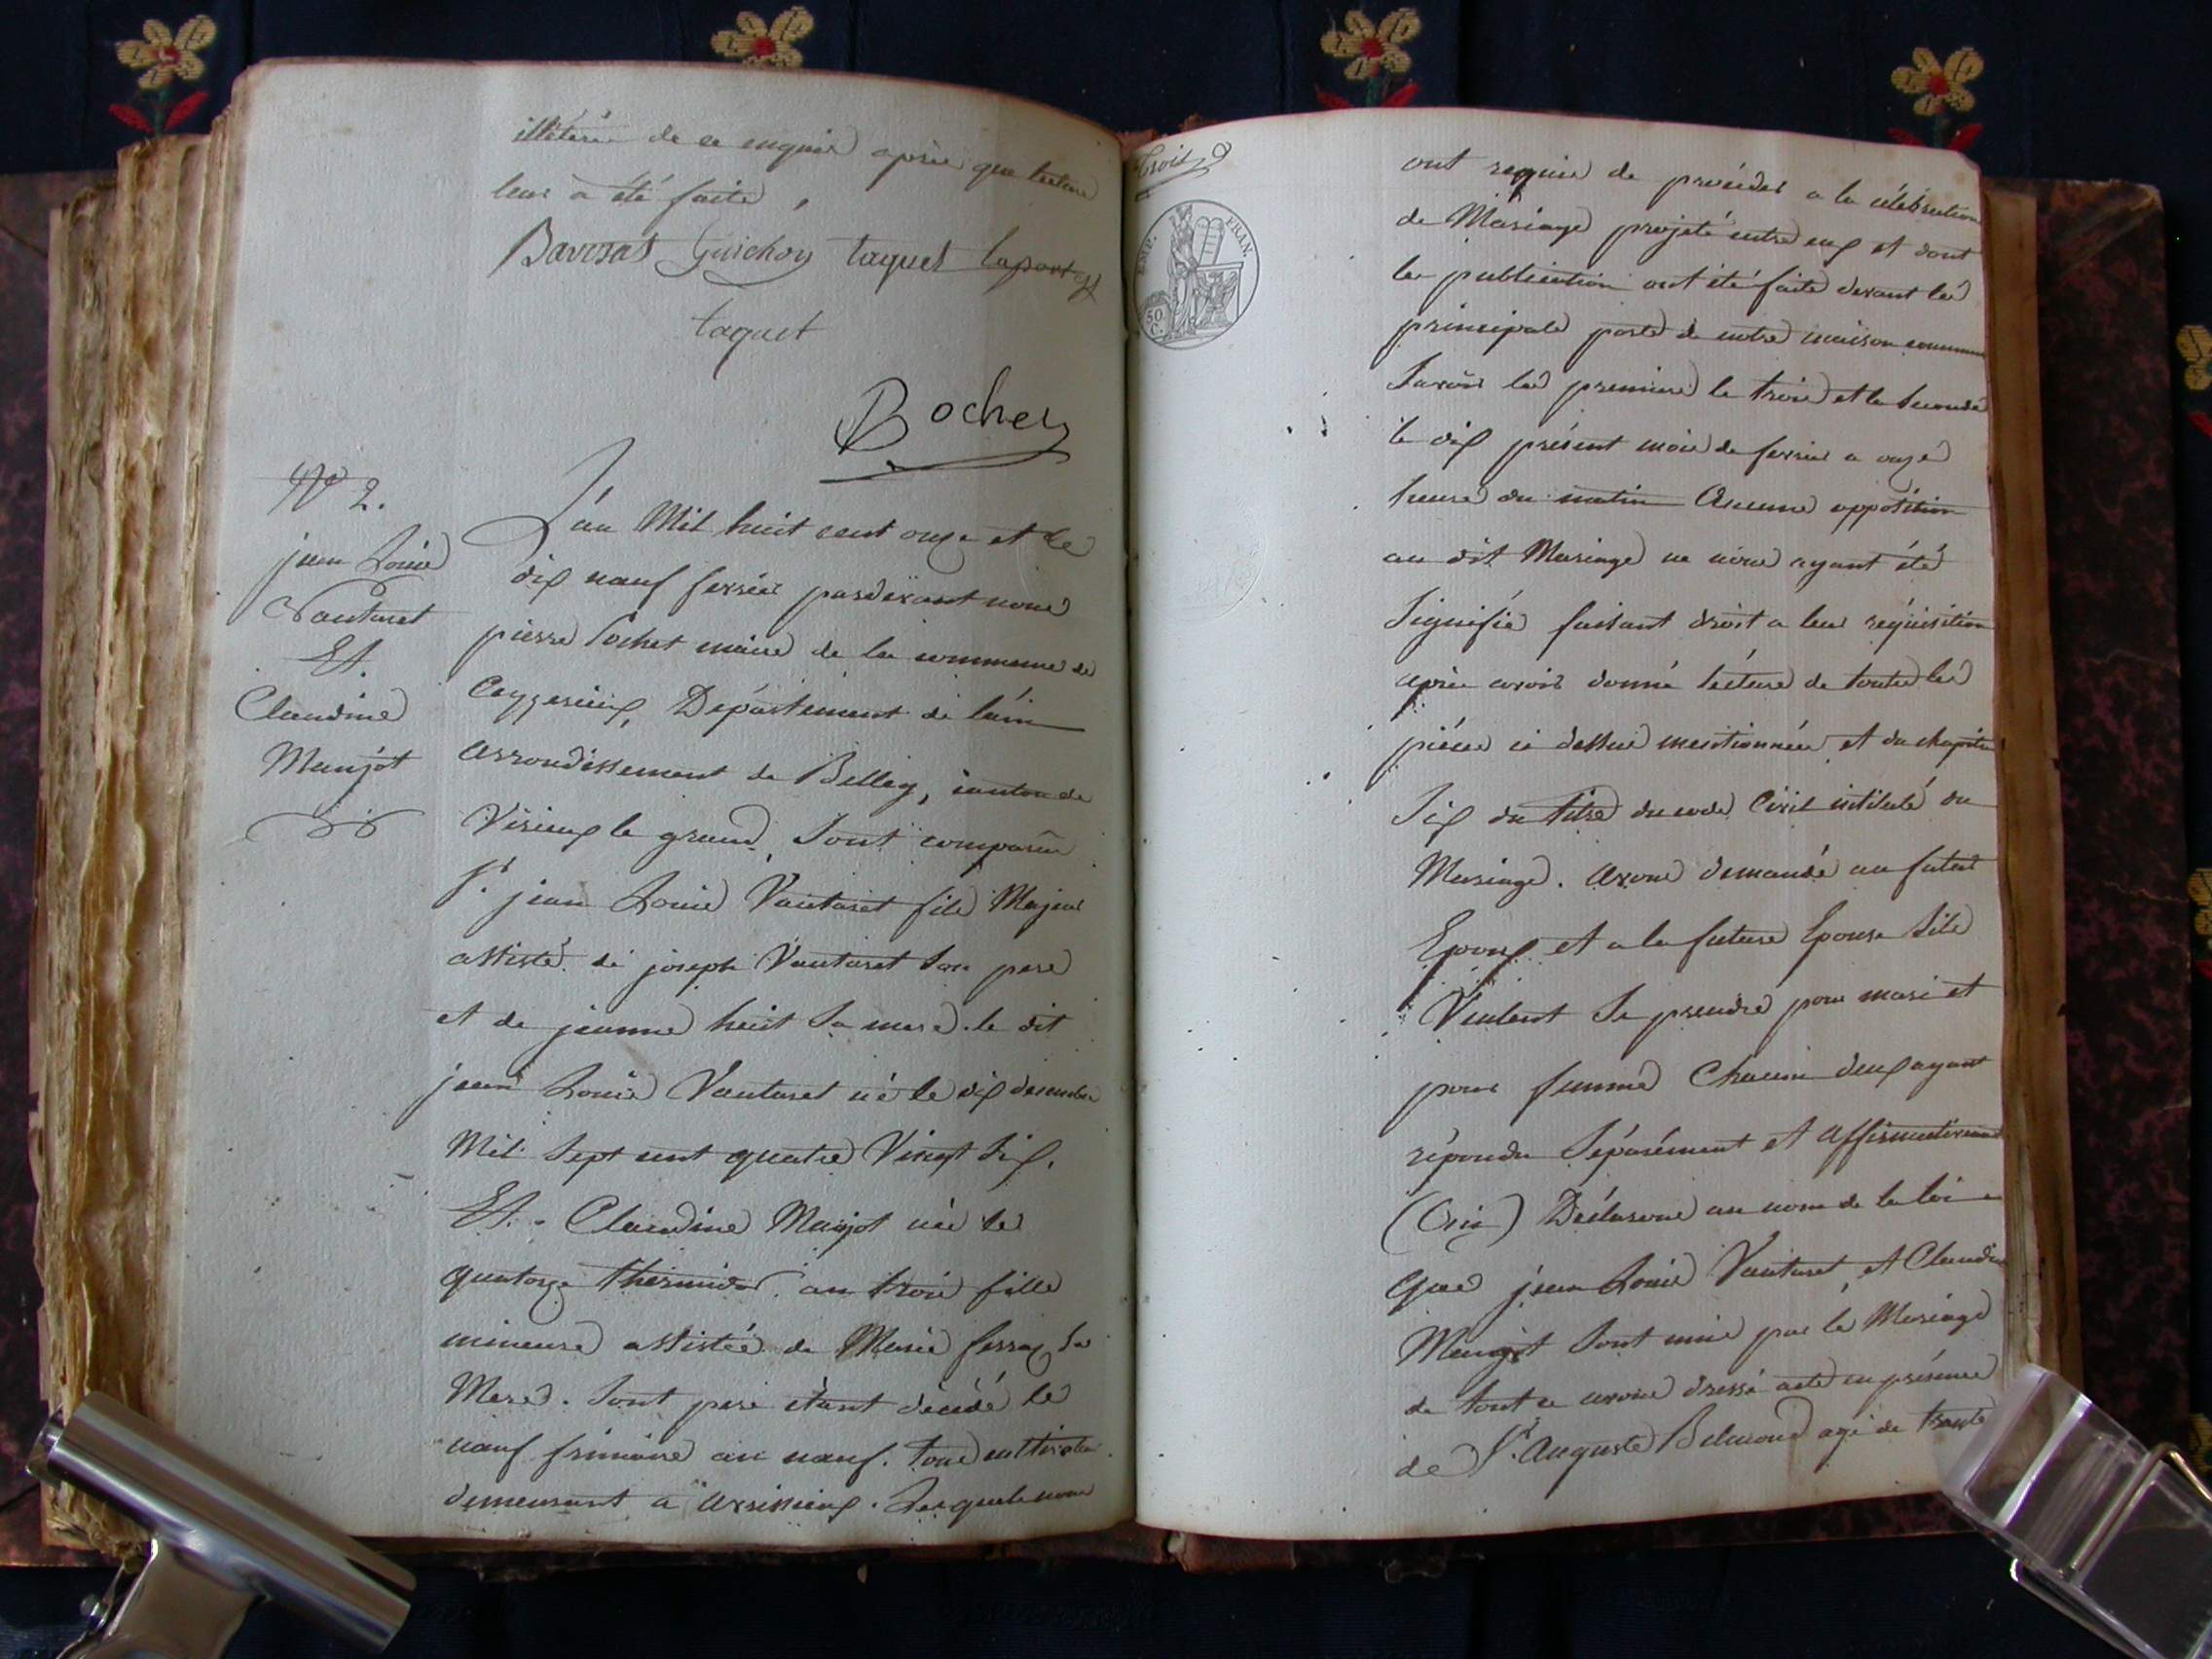 illiterée de ce enquis après que lecture
leur a été faite,
Guichon taquet laporte
taquet
Bochet
N° 2.
jean Louis
Vautaret
Et.
Claudine
Maujot
L'an Mil huit cent onze et le
dix neuf fevrier pardevant nous
pierre Bochet maire de la commune de
Ceyzerieux, Departement de l'ain
arrondissement de Belley, canton de
Virieux le grand, Sont comparus
Sr. jean Louis Vautaret fils Majeur
assisté de joseph Vautaret Son pere
et de jeanne huit Sa mere. le dit
jean Louis Vautaret né le dix decembre
Mil Sept cent quatre Vingt Six.
Et. Claudine Maujot née le
quatorze thermidor an trois fille
mineure assistée de Marie ferraz Sa
Mere. Sont pere étant décédé le
neuf frimaire an neuf. tous cultivateurs
demeurant a avrissieux. Lesquels nous
Trois
EMP. FRAN.
50 C.
ont requis de proceder a la célébration
de Mariage projeté entre eux et dont
les publication ont été faite devant la
principale porte de notre maison commune
Savoir la premiere le trois et la Seconde
le dix présent mois de fevrier a onze
heure du matin Aucune opposition
au dit Mariage ne nous ayant été
Signifié faisant droit a leur réquisition
après avoir donné lécture de toute les
pièces ci dessus mentionnées et du chapitre
Six du titre du code Civil intitulé du
Mariage. avons demandé au futur
Epoux et a la future Epouse Sils
Veulent Se prendre pour mari et
pour femme Chacun deux ayant
répondu Séparément et affirmativement
(Oui) Déclarons au nom de la loi
que jean Louis Vautaret, et Claudine
Maujot Sont unis par le Mariage
de tout ce avons dressé acte en présence
de Sr. Auguste Belmond agé de trente